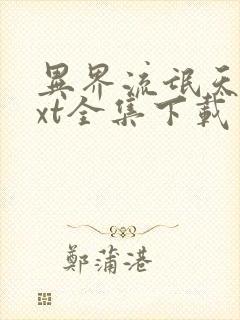 異界流氓天
xt全集下載
鄭蒲港